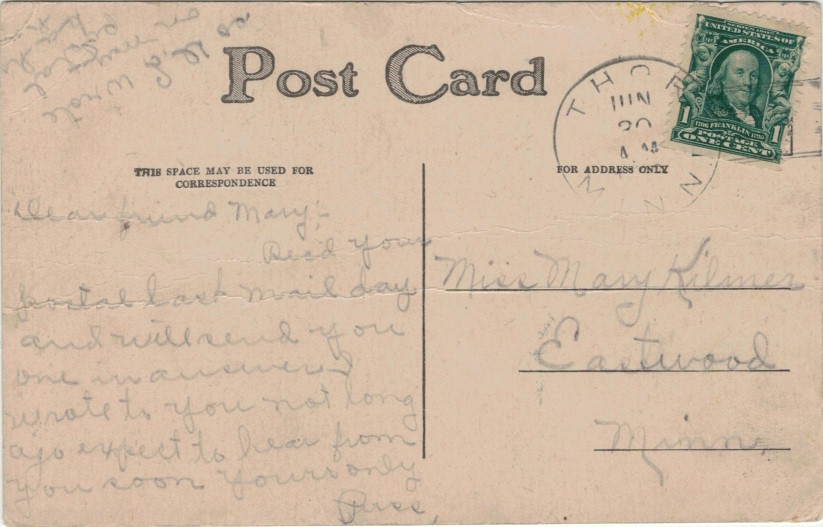 Post Card
THIS SPACE MAY BE USED FOR
CORRESPONDENCE
FOR ADDRESS ONLY
SERIES 1902
UNITED STATES OF
AMERICA
1 1706 FRANKLIN 1790 1
POSTAGE
ONE CENT
THOR
JUN
20
A.M
MINN
Dear friend Mary:-
Recd your
postal last mail day
and will send you
one in answer I
wrote to you not long
ago expect to hear from
you soon Yours only
Puss.
Miss Mary Kilmer
Eastwood
Minn.
wrote